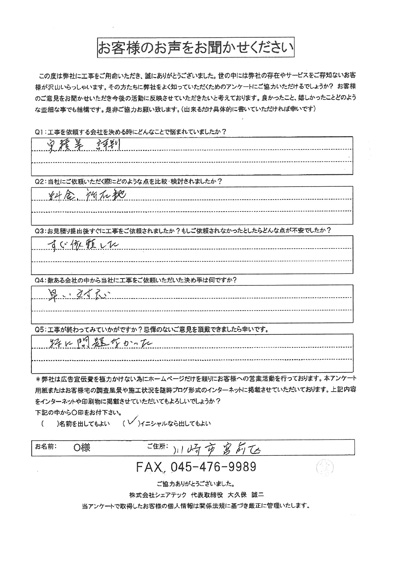 お客様のお声をお聞かせください
この度は弊社に工事をご用命いただき、誠にありがとうございました。世の中には弊社の存在やサービスをご存知ないお客
様が沢山いらっしゃいます。その方たちに弊社をよく知っていただくためのアンケートにご協力いただけるでしょうか？ お客様
のご意見をお聞かせいただき今後の活動に反映させていただきたいと考えております。良かったこと、嬉しかったことどのよう
な些細な事でも結構です。是非ご協力お願い致します。（出来るだけ具体的に書いていただければ幸いです）
Q1：工事を依頼する会社を決める時にどんなことで悩まれていましたか？
実積等 評判
Q2：当社にご依頼いただく際にどのような点を比較・検討されましたか？
料金、所在地
Q3：お見積り提出後すぐに工事をご依頼されましたか？もしご依頼されなかったとしたらどんな点が不安でしたか？
すぐ依頼した
Q4：数ある会社の中から当社に工事をご依頼いただいた決め手は何ですか？
早い対応
Q5：工事が終わってみていかがですか？忌憚のないご意見を頂戴できましたら幸いです。
特に問題なかった
＊弊社は広告宣伝費を極力かけない為にホームページだけを頼りにお客様への営業活動を行っております。本アンケート
用紙またはお客様宅の調査風景や施工状況を随時ブログ形式のインターネットに掲載させていただいております。上記内容
をインターネットや印刷物に掲載させていただいてもよろしいでしょうか？
下記の中から○印をお付下さい。
（ ）名前を出してもよい （✓）イニシャルなら出してもよい
お名前： O様 ご住所： 川崎市宮前区
FAX. 045-476-9989
ご協力ありがとうございました。
株式会社シェアテック 代表取締役 大久保 誠二
当アンケートで取得したお客様の個人情報は関係法規に基づき厳正に管理いたします。